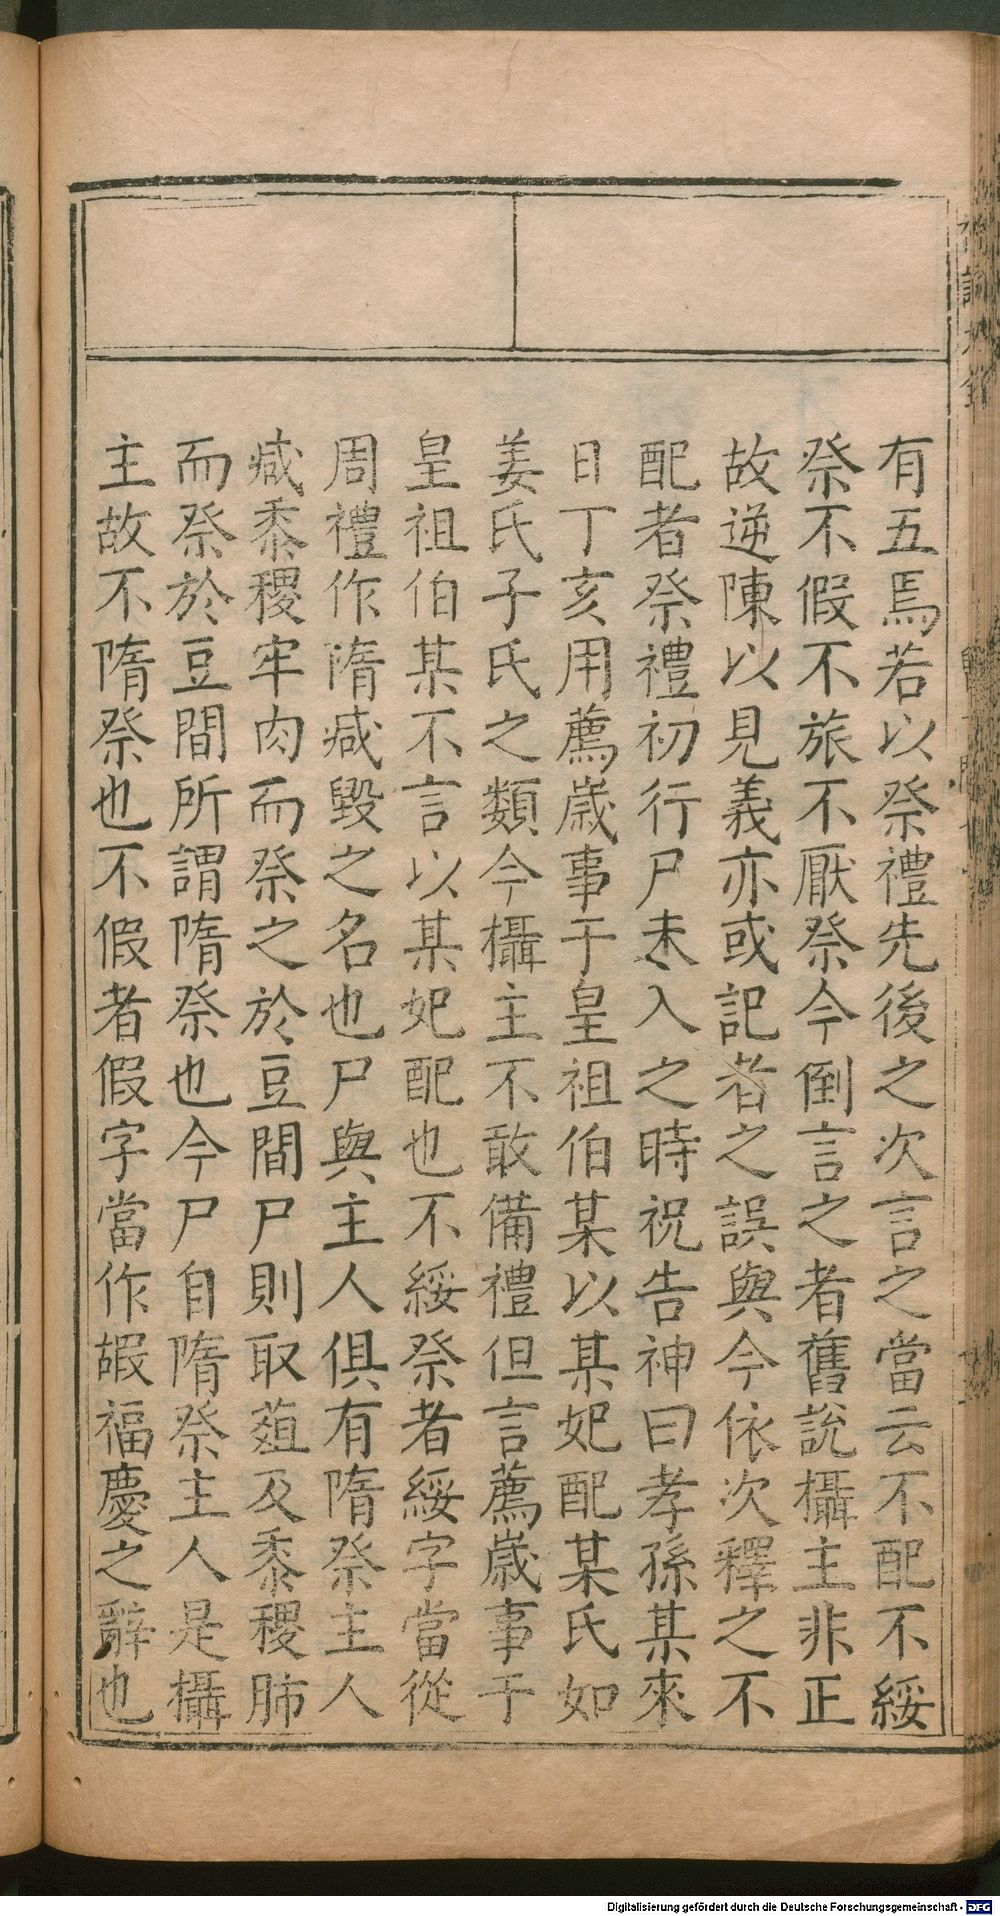 有五焉若以祭禮先後之次言之當云不配不綏
祭不假不旅不厭祭今倒言之者舊說攝主非正
故逆陳以見義亦或記者之誤與今依次釋之不
配者祭禮初行尸未入之時祝告神曰孝孫某來
日丁亥用薦歲事于皇祖伯某以某妃配某氏如
姜氏子氏之類今攝主不敢備禮但言薦歲事于
皇祖伯某不言以某妃配也不綏祭者綏字當從
周禮作隋減毀之名也尸與主人俱有隋祭主人
減黍稷牢肉而祭之於豆間尸則取菹及黍稷肺
而祭於豆間所謂隋祭也今尸自隋祭主人是攝
主故不隋祭也不假者假字當作嘏福慶之辭也
Digitalisierung gefördert durch die Deutsche Forschungsgemeinschaft - DFG